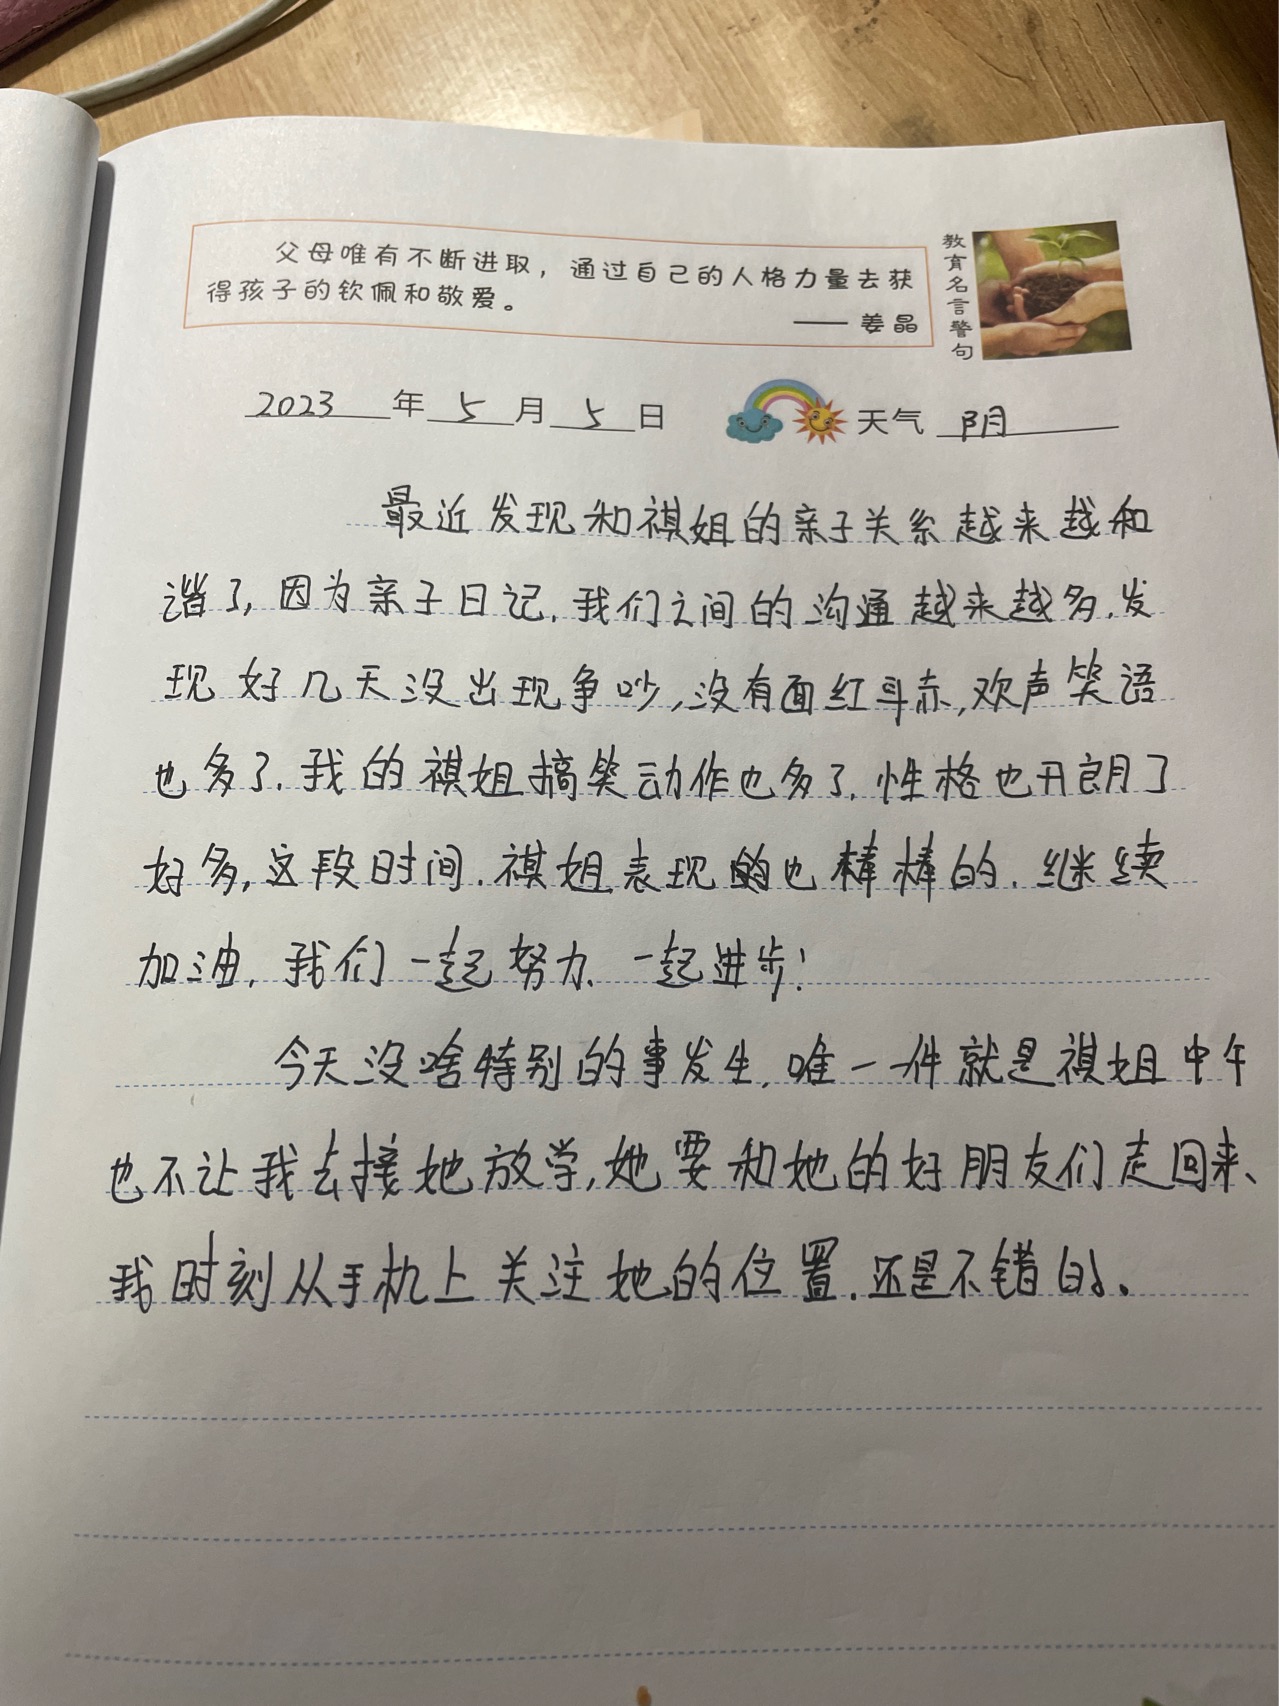 父母唯有不断进取，通过自己的人格力量去获
得孩子的钦佩和敬爱。
—— 姜晶
教育名言警句
2023 年 5 月 5 日 天气 阴
最近发现和祺姐的亲子关系越来越和
谐了,因为亲子日记.我们之间的沟通越来越多.发
现好几天没出现争吵,没有面红耳赤,欢声笑语
也多了.我的祺姐搞笑动作也多了.性格也开朗了
好多,这段时间.祺姐表现的也棒棒的.继续
加油.我们一起努力、一起进步!
今天没啥特别的事发生.唯一一件就是祺姐中午
也不让我去接她放学,她要和她的好朋友们走回来、
我时刻从手机上关注她的位置.还是不错的、